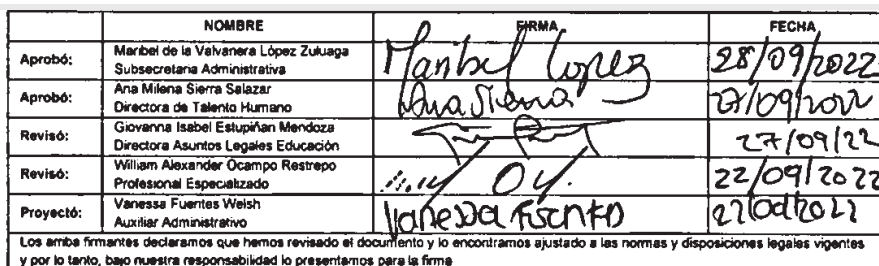 NOMBRE FIRMA FECHA
Aprobó: Maribel de la Valvanera López Zuluaga
Subsecretaria Administrativa
Maribel Lopez 28/09/2022
Aprobó: Ana Milena Sierra Salazar
Directora de Talento Humano
Ana Sierra 27/09/2022
Revisó: Giovanna Isabel Estupiñan Mendoza
Directora Asuntos Legales Educación
27/09/22
Revisó: William Alexander Ocampo Restrepo
Profesional Especializado
22/09/2022
Proyectó: Vanessa Fuentes Welsh
Auxiliar Administrativo
Vanessa Fuentes
Los arriba firmantes declaramos que hemos revisado el documento y lo encontramos ajustado a las normas y disposiciones legales vigentes
y por lo tanto, bajo nuestra responsabilidad lo presentamos para la firma